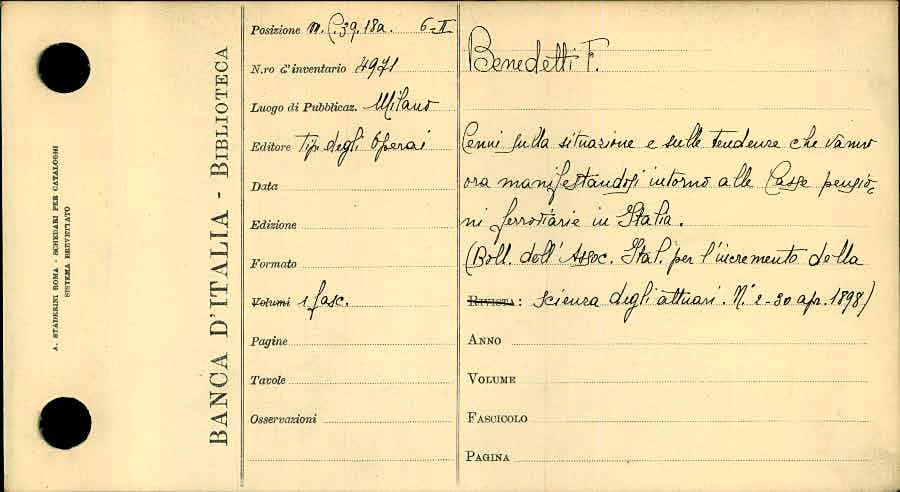 A. STADERINI ROMA - SCHEDARI PER CATALOGHI
SISTEMA BREVETTATO
BANCA D'ITALIA - BIBLIOTECA
Posizione m. C.39.18a. 6-II
N.ro d'inventario 4971
Luogo di Pubblicaz. Milano
Editore Tip. degli Operai
Data
Edizione
Formato
Volumi 1 fasc.
Pagine
Tavole
Osservazioni
Benedetti F.
Cenni sulla situazione e sulle tendenze che vanno
ora manifestandosi intorno alle Casse pensio-
ni ferroviarie in Italia.
(Boll. dell' Assoc. Ital. per l'incremento della
RIVISTA: scienza degli attuari. N. 2-30 apr. 1898)
ANNO
VOLUME
FASCICOLO
PAGINA